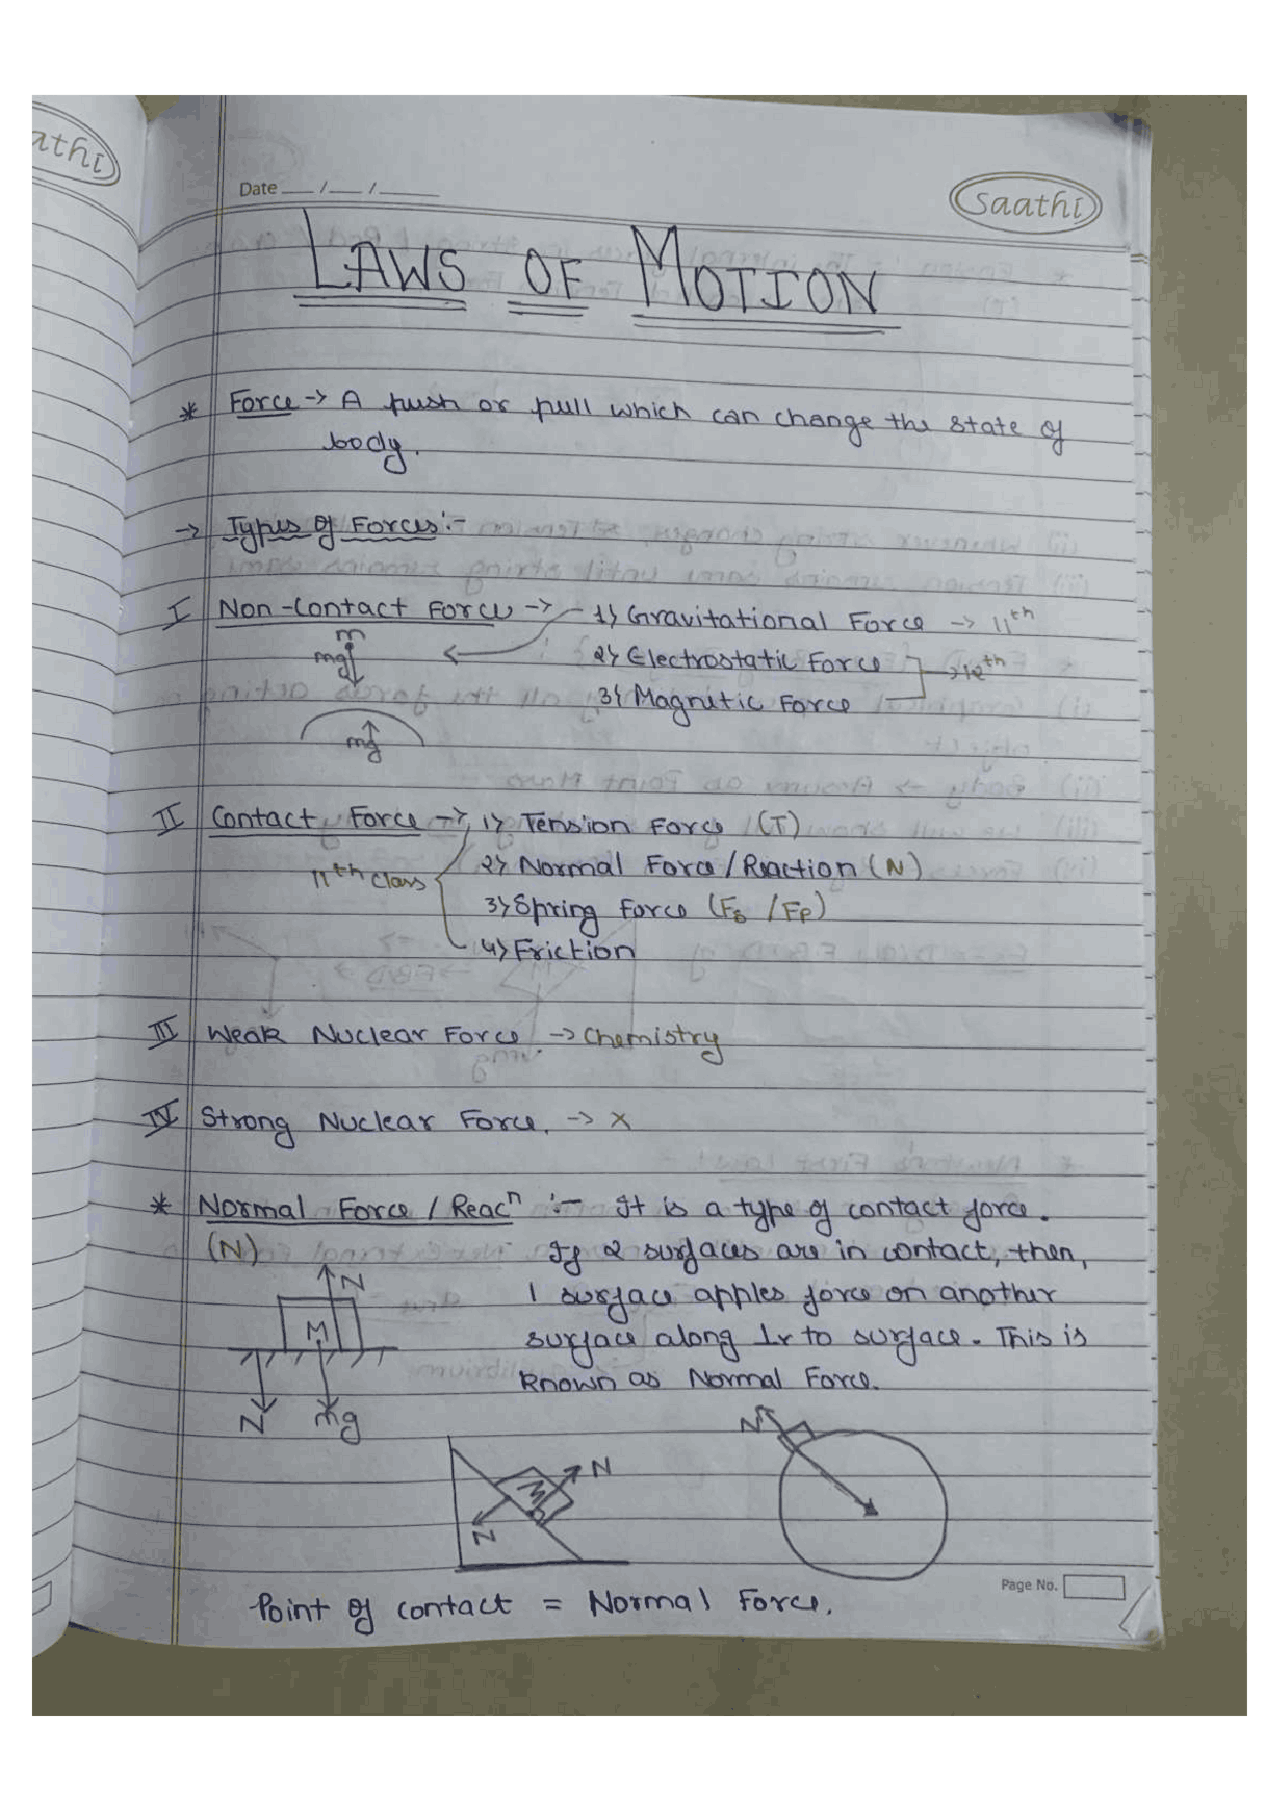 athi
Date __/__/____
Saathi
LAWS OF MOTION
* Force -> A push or pull which can change the state of
body.
-> Types of Forces :-
I Non-Contact Force -> 1) Gravitational Force -> 11th
m
mg
2) Electrostatic Force
3) Magnetic Force
-> 12th
mg
II Contact Force -> 1) Tension Force (T)
11th class
2) Normal Force / Reaction (N)
3) Spring Force (Fs / FP)
4) Friction
III Weak Nuclear Force -> Chemistry
IV Strong Nuclear Force. -> X
* Normal Force / Reacn :- It is a type of contact force.
(N)
If 2 surfaces are in contact, then,
1 surface apples force on another
surface along ⊥r to surface. This is
known as Normal Force.
N
M
N
mg
N
M
N
N
Point of contact = Normal Force.
Page No.